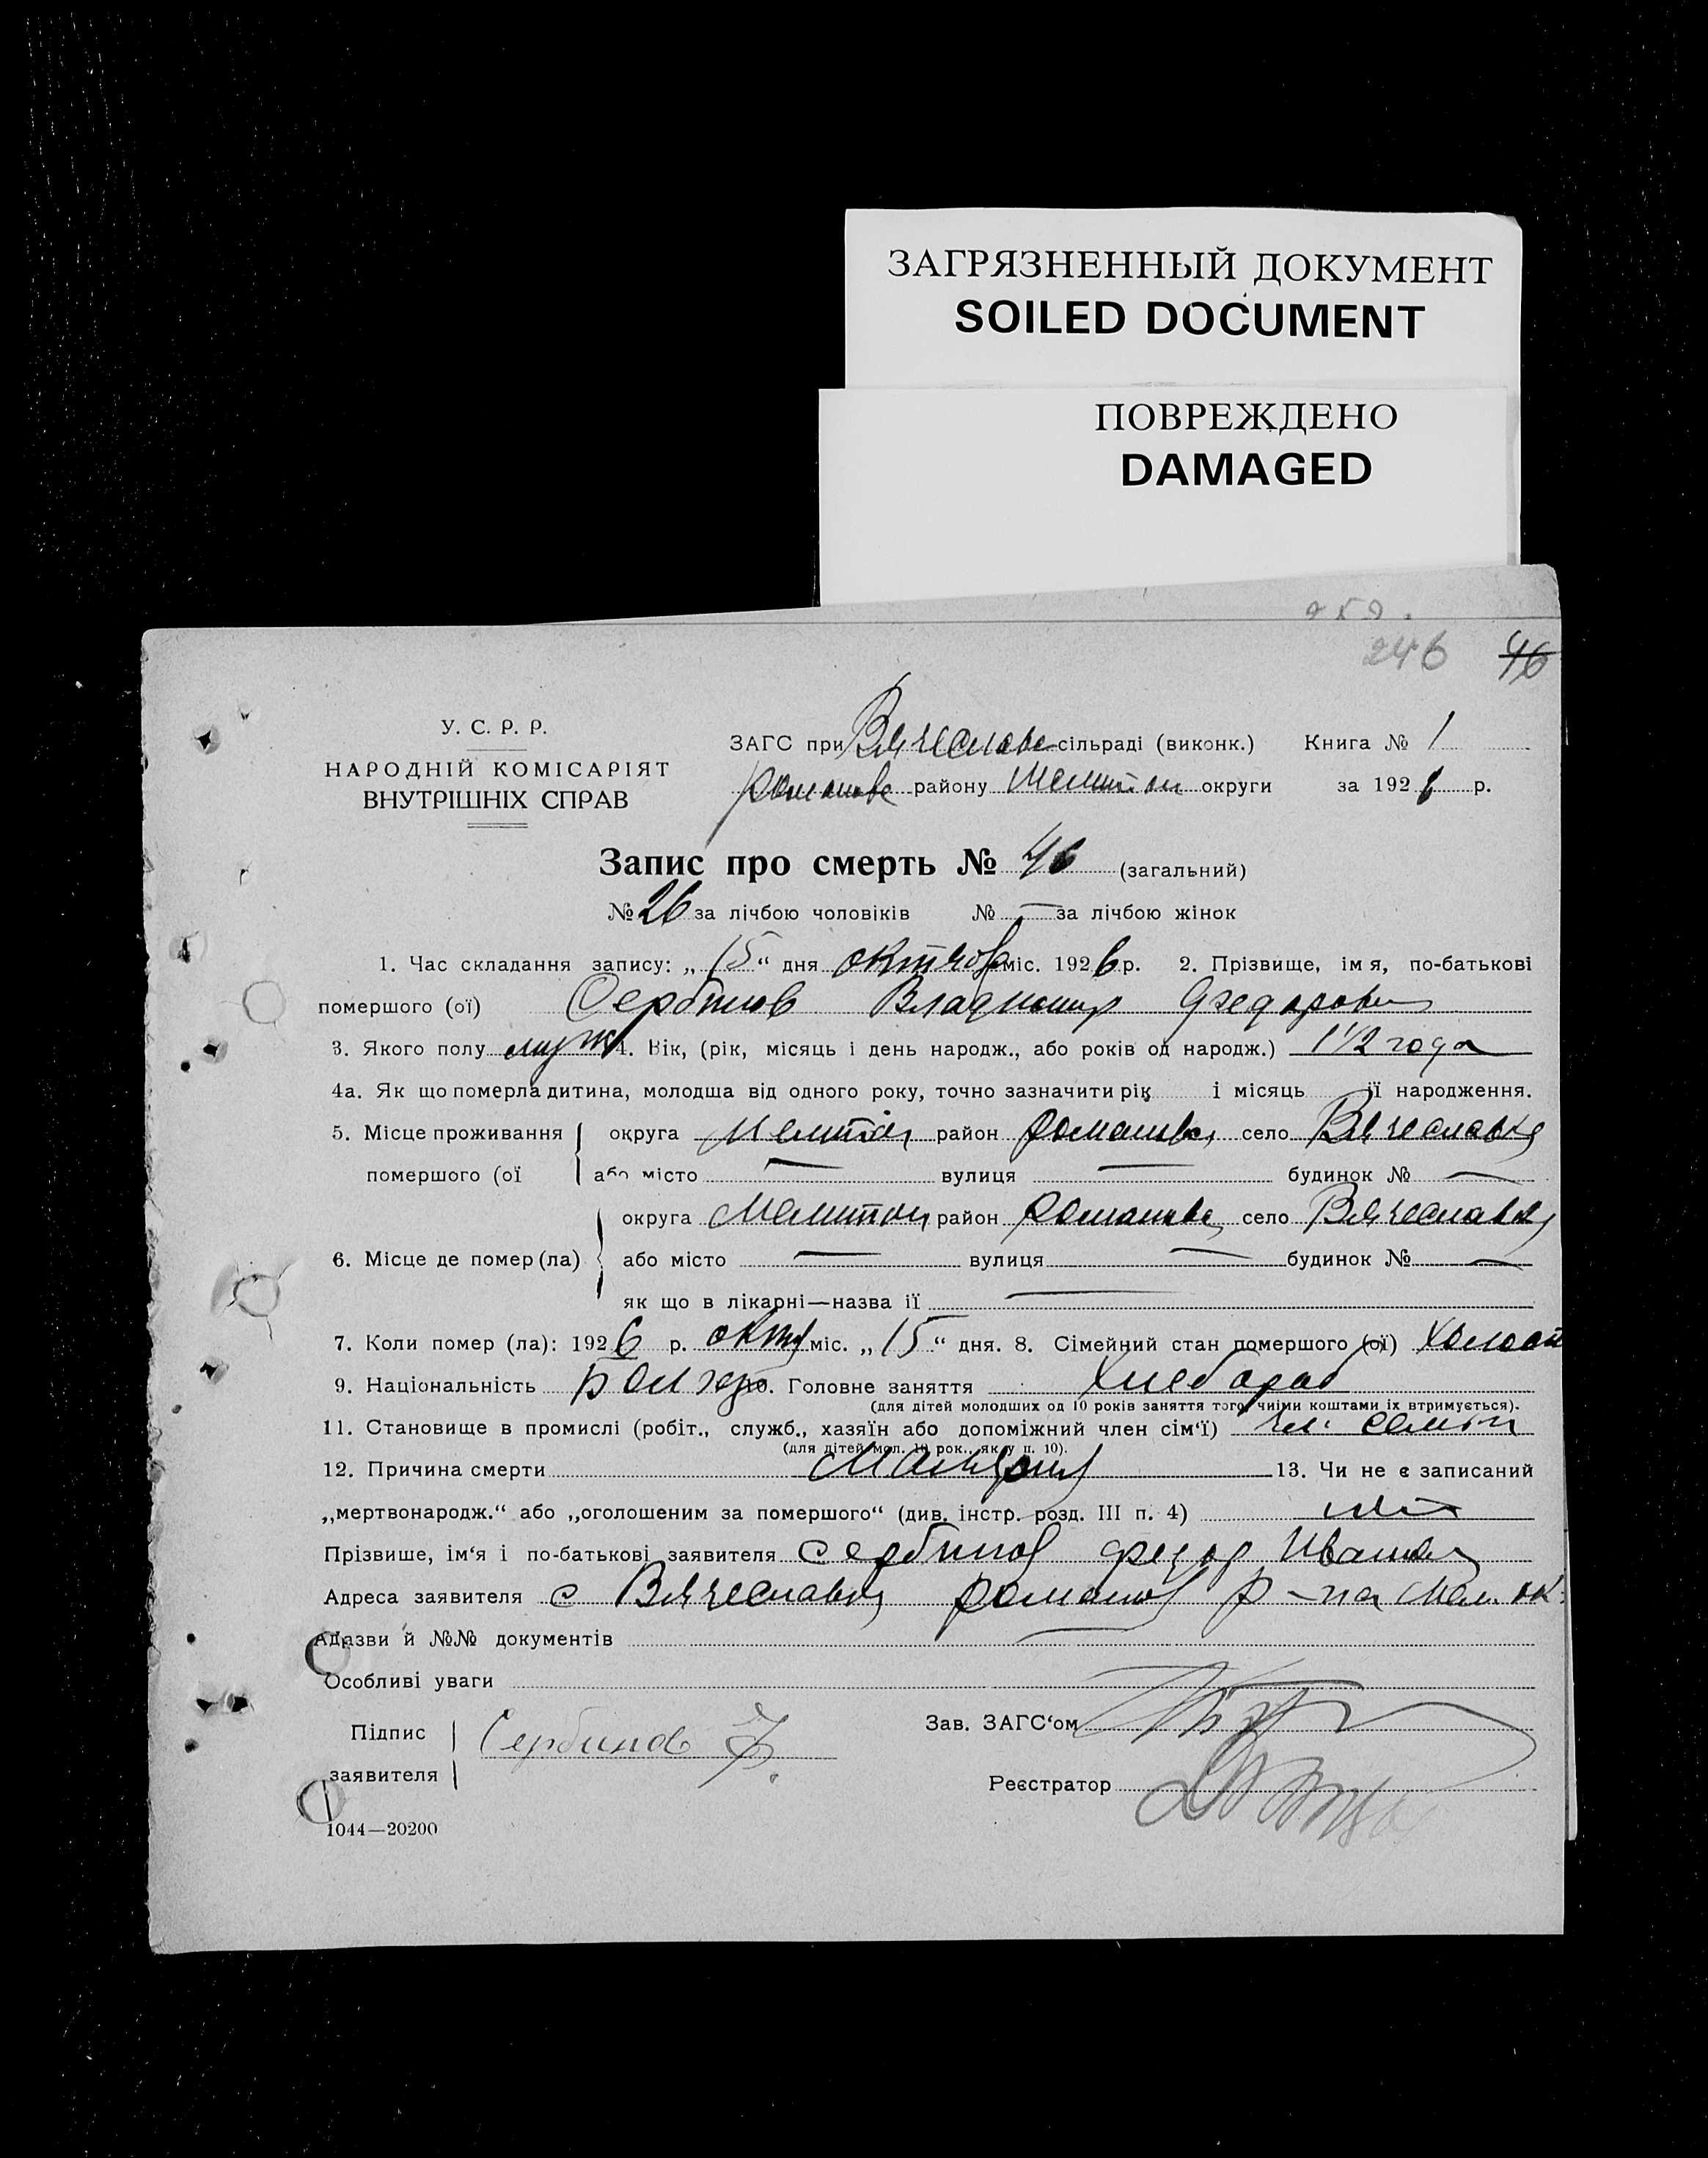 ЗАГРЯЗНЕННЫЙ ДОКУМЕНТ
SOILED DOCUMENT
ПОВРЕЖДЕНО
DAMAGED
246 46
У. С. Р. Р.
НАРОДНІЙ КОМІСАРІЯТ
ВНУТРІШНІХ СПРАВ
ЗАГС при Вячеславе сільраді (виконк.) Книга № 1
Романове району Мелитоп округи за 1926 р.
Запис про смерть № 46 (загальний)
№ 26 за лічбою чоловіків № — за лічбою жінок
1. Час складання запису: „15“ дня октября міс. 1926 р. 2. Прізвище, імя, по-батькові
помершого (ої) Сербинов Владимир Федорович
3. Якого полу муж 4. Вік, (рік, місяць і день народж., або років од народж.) 1 1/2 года
4а. Як що померла дитина, молодша від одного року, точно зазначити рік і місяць її народження.
5. Місце проживання округа Мелитоп район Романовс село Вячеславка
помершого (ої або місто — вулиця — будинок № —
округа Мелитоп район Романовс село Вячеславка
6. Місце де помер (ла) або місто — вулиця — будинок № —
як що в лікарні—назва її —
7. Коли помер (ла): 1926 р. октя міс. „15“ дня. 8. Сімейний стан помершого (ої) Холост
9. Національність Болгар 10. Головне заняття Хлебораб
(для дітей молодших од 10 років заняття того, чиїми коштами їх втримується).
11. Становище в промислі (робіт., служб., хазяїн або допоміжний член сім‘ї) чл. семьи
(для дітей мол. 10 рок., як у п. 10).
12. Причина смерти Малярия 13. Чи не є записаний
„мертвонародж.“ або „оголошеним за помершого“ (див. інстр. розд. III п. 4) нет
Прізвише, ім‘я і по-батькові заявителя Сербинов Федор Иванов
Адреса заявителя с Вячеславка Романов р-на Мел. ок.
Назви й №№ документів
Особливі уваги
Підпис Сербинов Ф. Зав. ЗАГС‘ом
заявителя Реєстратор
1044—20200